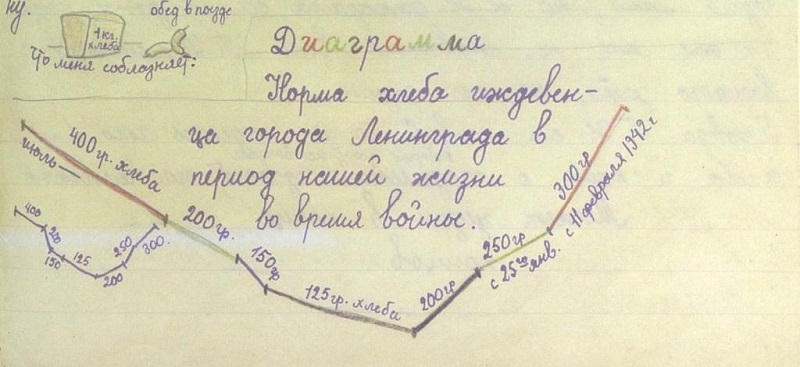 ну.
обед в поезде
1 кг. хлеба
Что меня соблазняет:
Диаграмма
Норма хлеба иждевен-
ца города Ленинграда в
период нашей жизни
во время войны.
июль—
400 гр. хлеба
200 гр.
150 гр
125 гр. хлеба
200 гр
250 гр
с 25го янв.
300 гр
с 11 февраля 1942 г.
400
200
150
125
200
250
300.